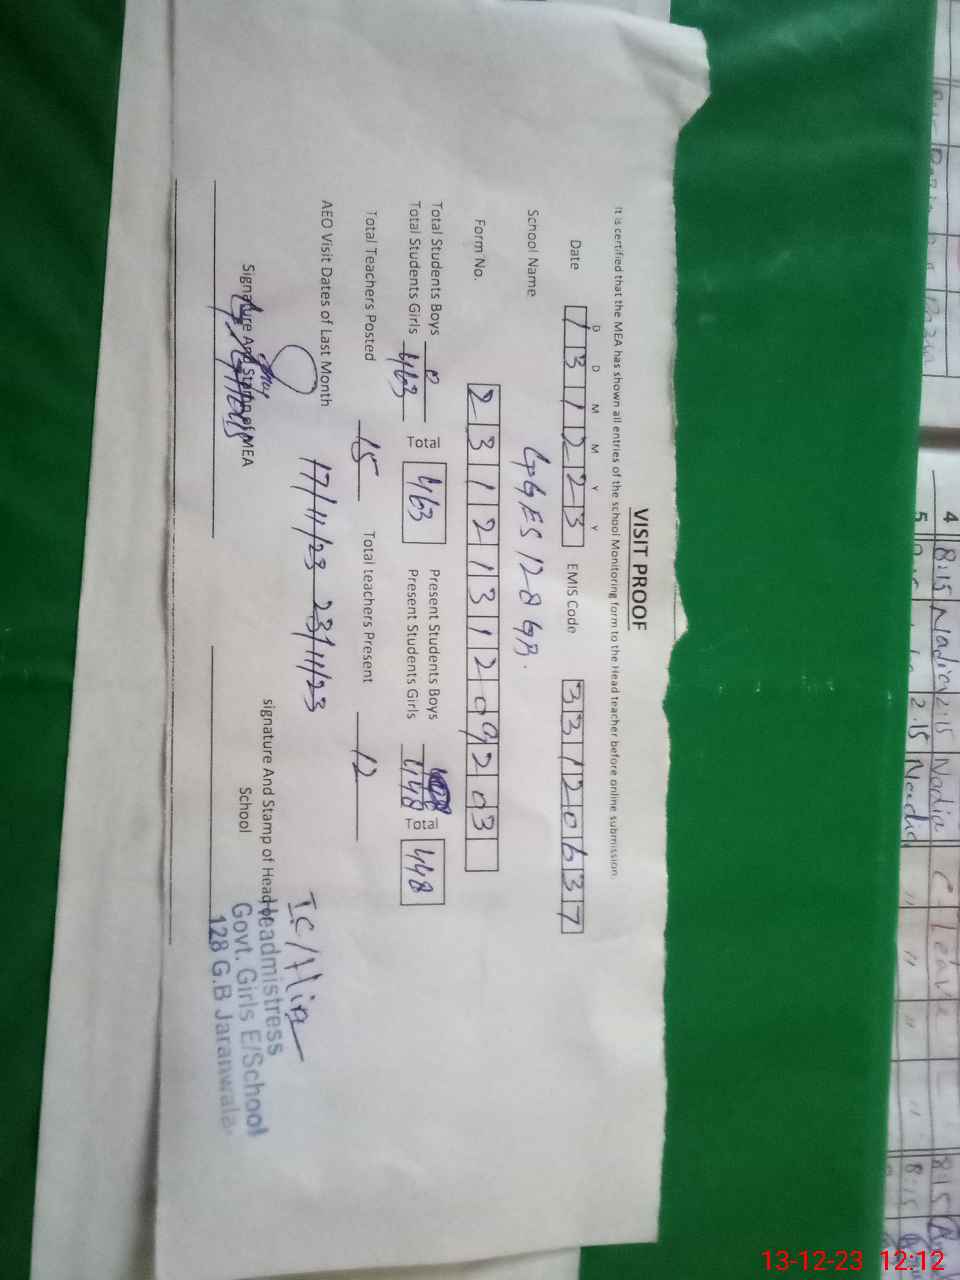 VISIT PROOF
It is certified that the MEA has shown all entries of the school Monitoring form to the Head teacher before online submission.
D D M M Y Y
Date 1 3 1 2 2 3 EMIS Code 3 3 1 2 0 6 3 7
School Name GGES 128 GB.
Form No. 2 3 1 2 1 3 1 2 0 9 2 0 3
Total Students Boys 0 Present Students Boys
Total Students Girls 463 Total 463 Present Students Girls 448 Total 448
Total Teachers Posted 15 Total teachers Present 12
AEO Visit Dates of Last Month 17/11/23 23/11/23
Signature And Stamp of MEA
signature And Stamp of Head
School
I C /
Headmistress
Govt. Girls E/School
128 G.B Jaranwala
4 8:15 Nadia 2:15 Nadia C. Leave 8:15
5 2.15 Nadia " " " " 8:15
13-12-23 12:12